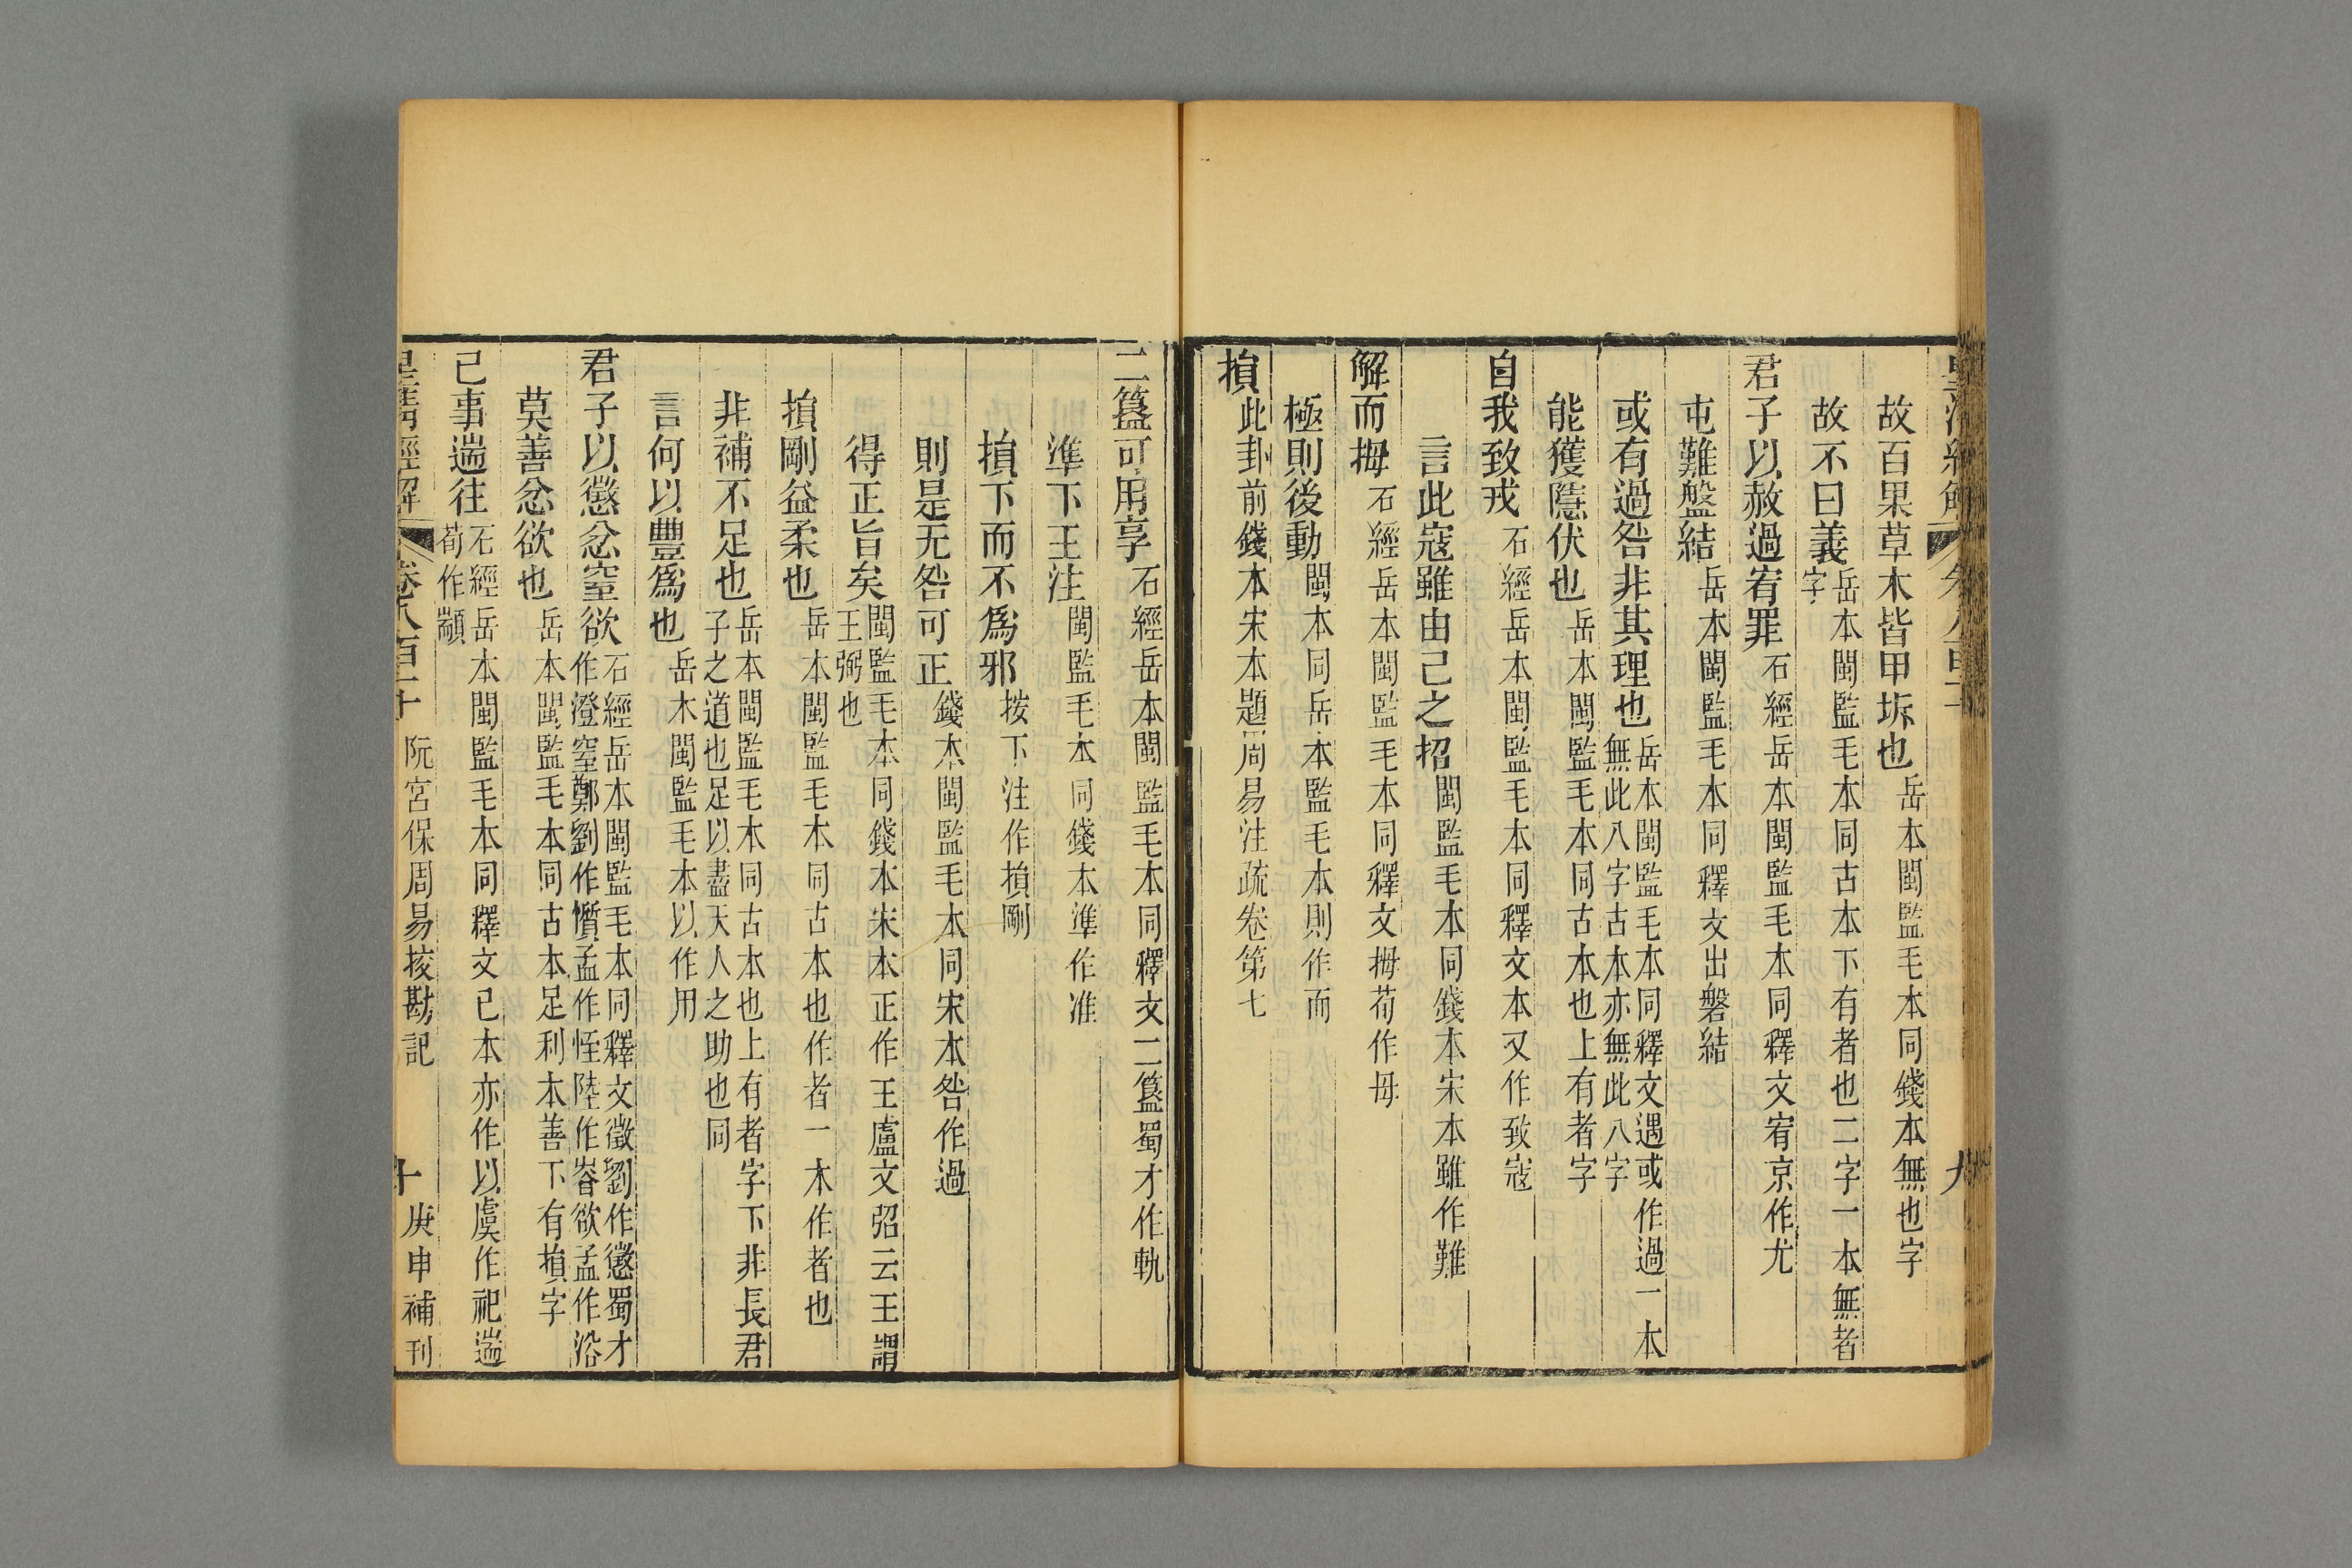 故百果草木皆甲坼也岳本閩監毛本同錢本無也字
故不曰義岳本閩監毛本同古本下有者也二字一本無者字
君子以赦過宥罪石經岳本閩監毛本同釋文宥京作尤
屯難盤結岳本閩監毛本同釋文出磐結
或有過咎非其理也岳本閩監毛本同釋文遇或作過一本無此八字古本亦無此八字
能獲隱伏也岳本閩監毛本同古本也上有者字
自我致戎石經岳本閩監毛本同釋文本又作致寇
言此寇雖由己之招閩監毛本同錢本宋本雖作難
解而拇石經岳本閩監毛本同釋文拇荀作母
極則後動閩本同岳本監毛本則作而
損此卦前錢本宋本題周易注疏卷第七
二簋可用享石經岳本閩監毛本同釋文二簋蜀才作軌
準下王注閩監毛本同錢本準作准
損下而不爲邪按下注作損剛
則是无咎可正錢本閩監毛本同宋本咎作過
得正旨矣閩監毛本同錢本宋本正作王盧文弨云王謂王弼也
損剛益柔也岳本閩監毛本同古本也作者一本作者也
非補不足也岳本閩監毛本同古本也上有者字下非長君子之道也足以盡天人之助也同
言何以豐爲也岳本閩監毛本以作用
君子以懲忿窒欲石經岳本閩監毛本同釋文徵劉作懲蜀才作澄窒鄭劉作懫孟作恎陸作㟴欲孟作浴
莫善忿欲也岳本閩監毛本同古本足利本善下有損字
已事遄往石經岳本閩監毛本同釋文已本亦作以虞作祀遄荀作顓
皇淸經解 卷八百二十 阮宮保周易挍勘記 十 庚申補刊